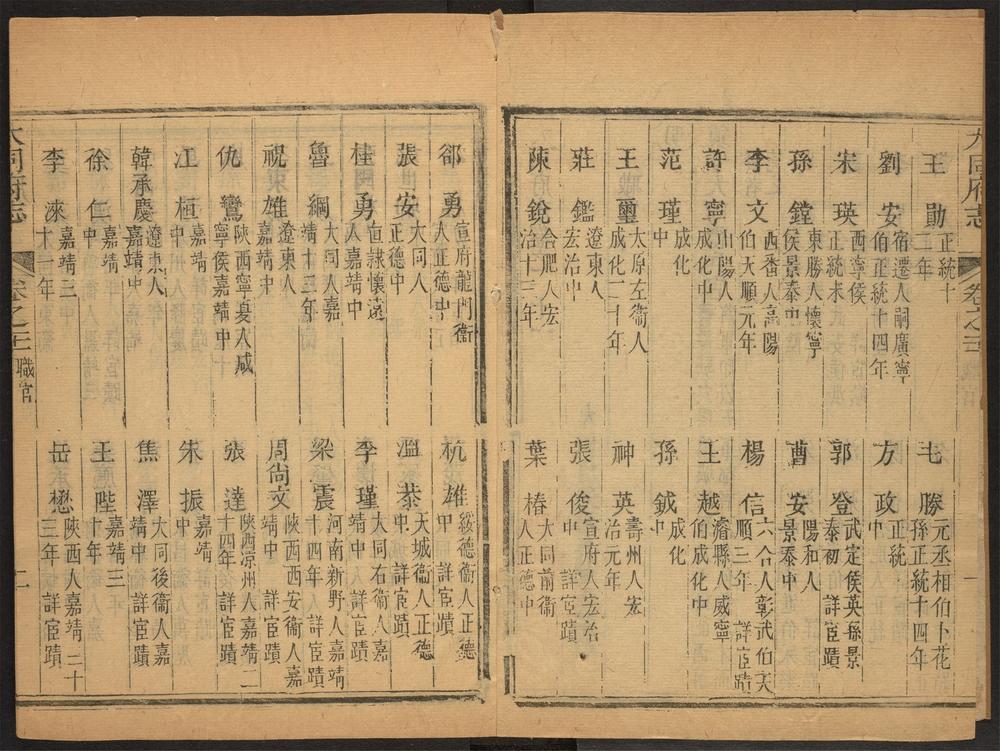 大同府志 卷之
王勛 正統十二年 毛勝 元丞相伯卜花孫正統十四年
劉安 宿遷人嗣廣寧伯正統十四年 方政 正統中
宋瑛 西寧侯正統末 郭登 武定侯英孫景泰初 詳宦蹟
孫鏜 東勝人懷寧侯景泰中 曹安 陽和人景泰中
李文 西番人高陽伯天順元年 楊信 六合人彰武伯天順二年 詳宦蹟
許寧 山陽人成化中 王越 濬縣人威寧伯成化中
范瑾 成化中 孫鉞 成化中
王璽 太原左衞人成化二十年 神英 壽州人宏治元年
莊鑑 遼東人宏治中 張俊 宣府人宏治中 詳宦蹟
陳銳 合肥人宏治十三年 葉椿 大同前衞人正德中
郤勇 宣府龍門衞人正德中 杭雄 綏德衞人正德中 詳宦蹟
張安 大同人正德中 溫恭 天城衞人正德中 詳宦蹟
桂勇 直隸懷遠人嘉靖中 李瑾 大同右衞人嘉靖中 詳宦蹟
魯綱 大同人嘉靖十三年 梁震 河南新野人嘉靖十四年 詳宦蹟
祝雄 遼東人嘉靖中 周尚文 陝西西安衞人嘉靖中 詳宦蹟
仇鸞 陝西寧夏人咸寧侯嘉靖中 張達 陝西凉州人嘉靖二十四年 詳宦蹟
江桓 嘉靖中 朱振 嘉靖中
韓承慶 遼東人嘉靖中 焦澤 大同後衞人嘉靖中 詳宦蹟
徐仁 嘉靖中 王陛 嘉靖三十年
李淶 嘉靖三十一年 岳懋 陝西人嘉靖二十三年 詳宦蹟
大同府志 卷之 職官